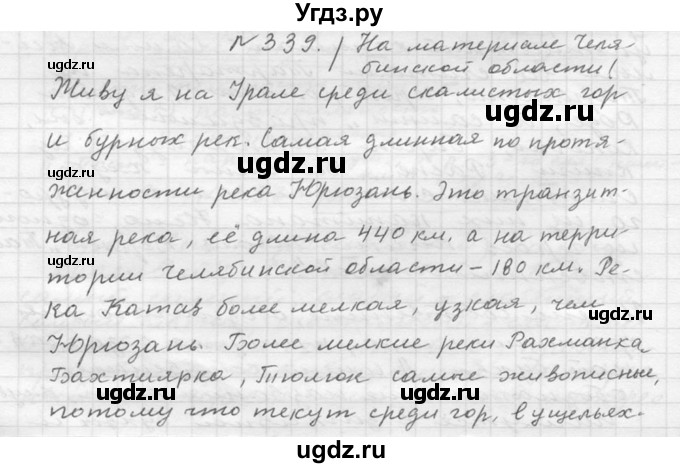 Угдз.ру
№339. / На материале Челя-
бинской области /
Живу я на Урале среди скалистых гор
и бурных рек. Самая длинная по протя-
женности река Юрюзань. Это транзит-
ная река, её длина 440 км. а на терри-
тории Челябинской области - 180 км. Ре-
ка Катав более мелкая, узкая, чем
Юрюзань. Более мелкие реки Рахманка,
Бахтиярка, Тюлюк самые живописные,
потому что текут среди гор, в ущельях.
ugdz.ru
ugdz.ru
ugdz.ru
ugdz.ru
ugdz.ru
ugdz.ru
ugdz.ru
ugdz.ru
ugdz.ru
ugdz.ru
ugdz.ru
ugdz.ru